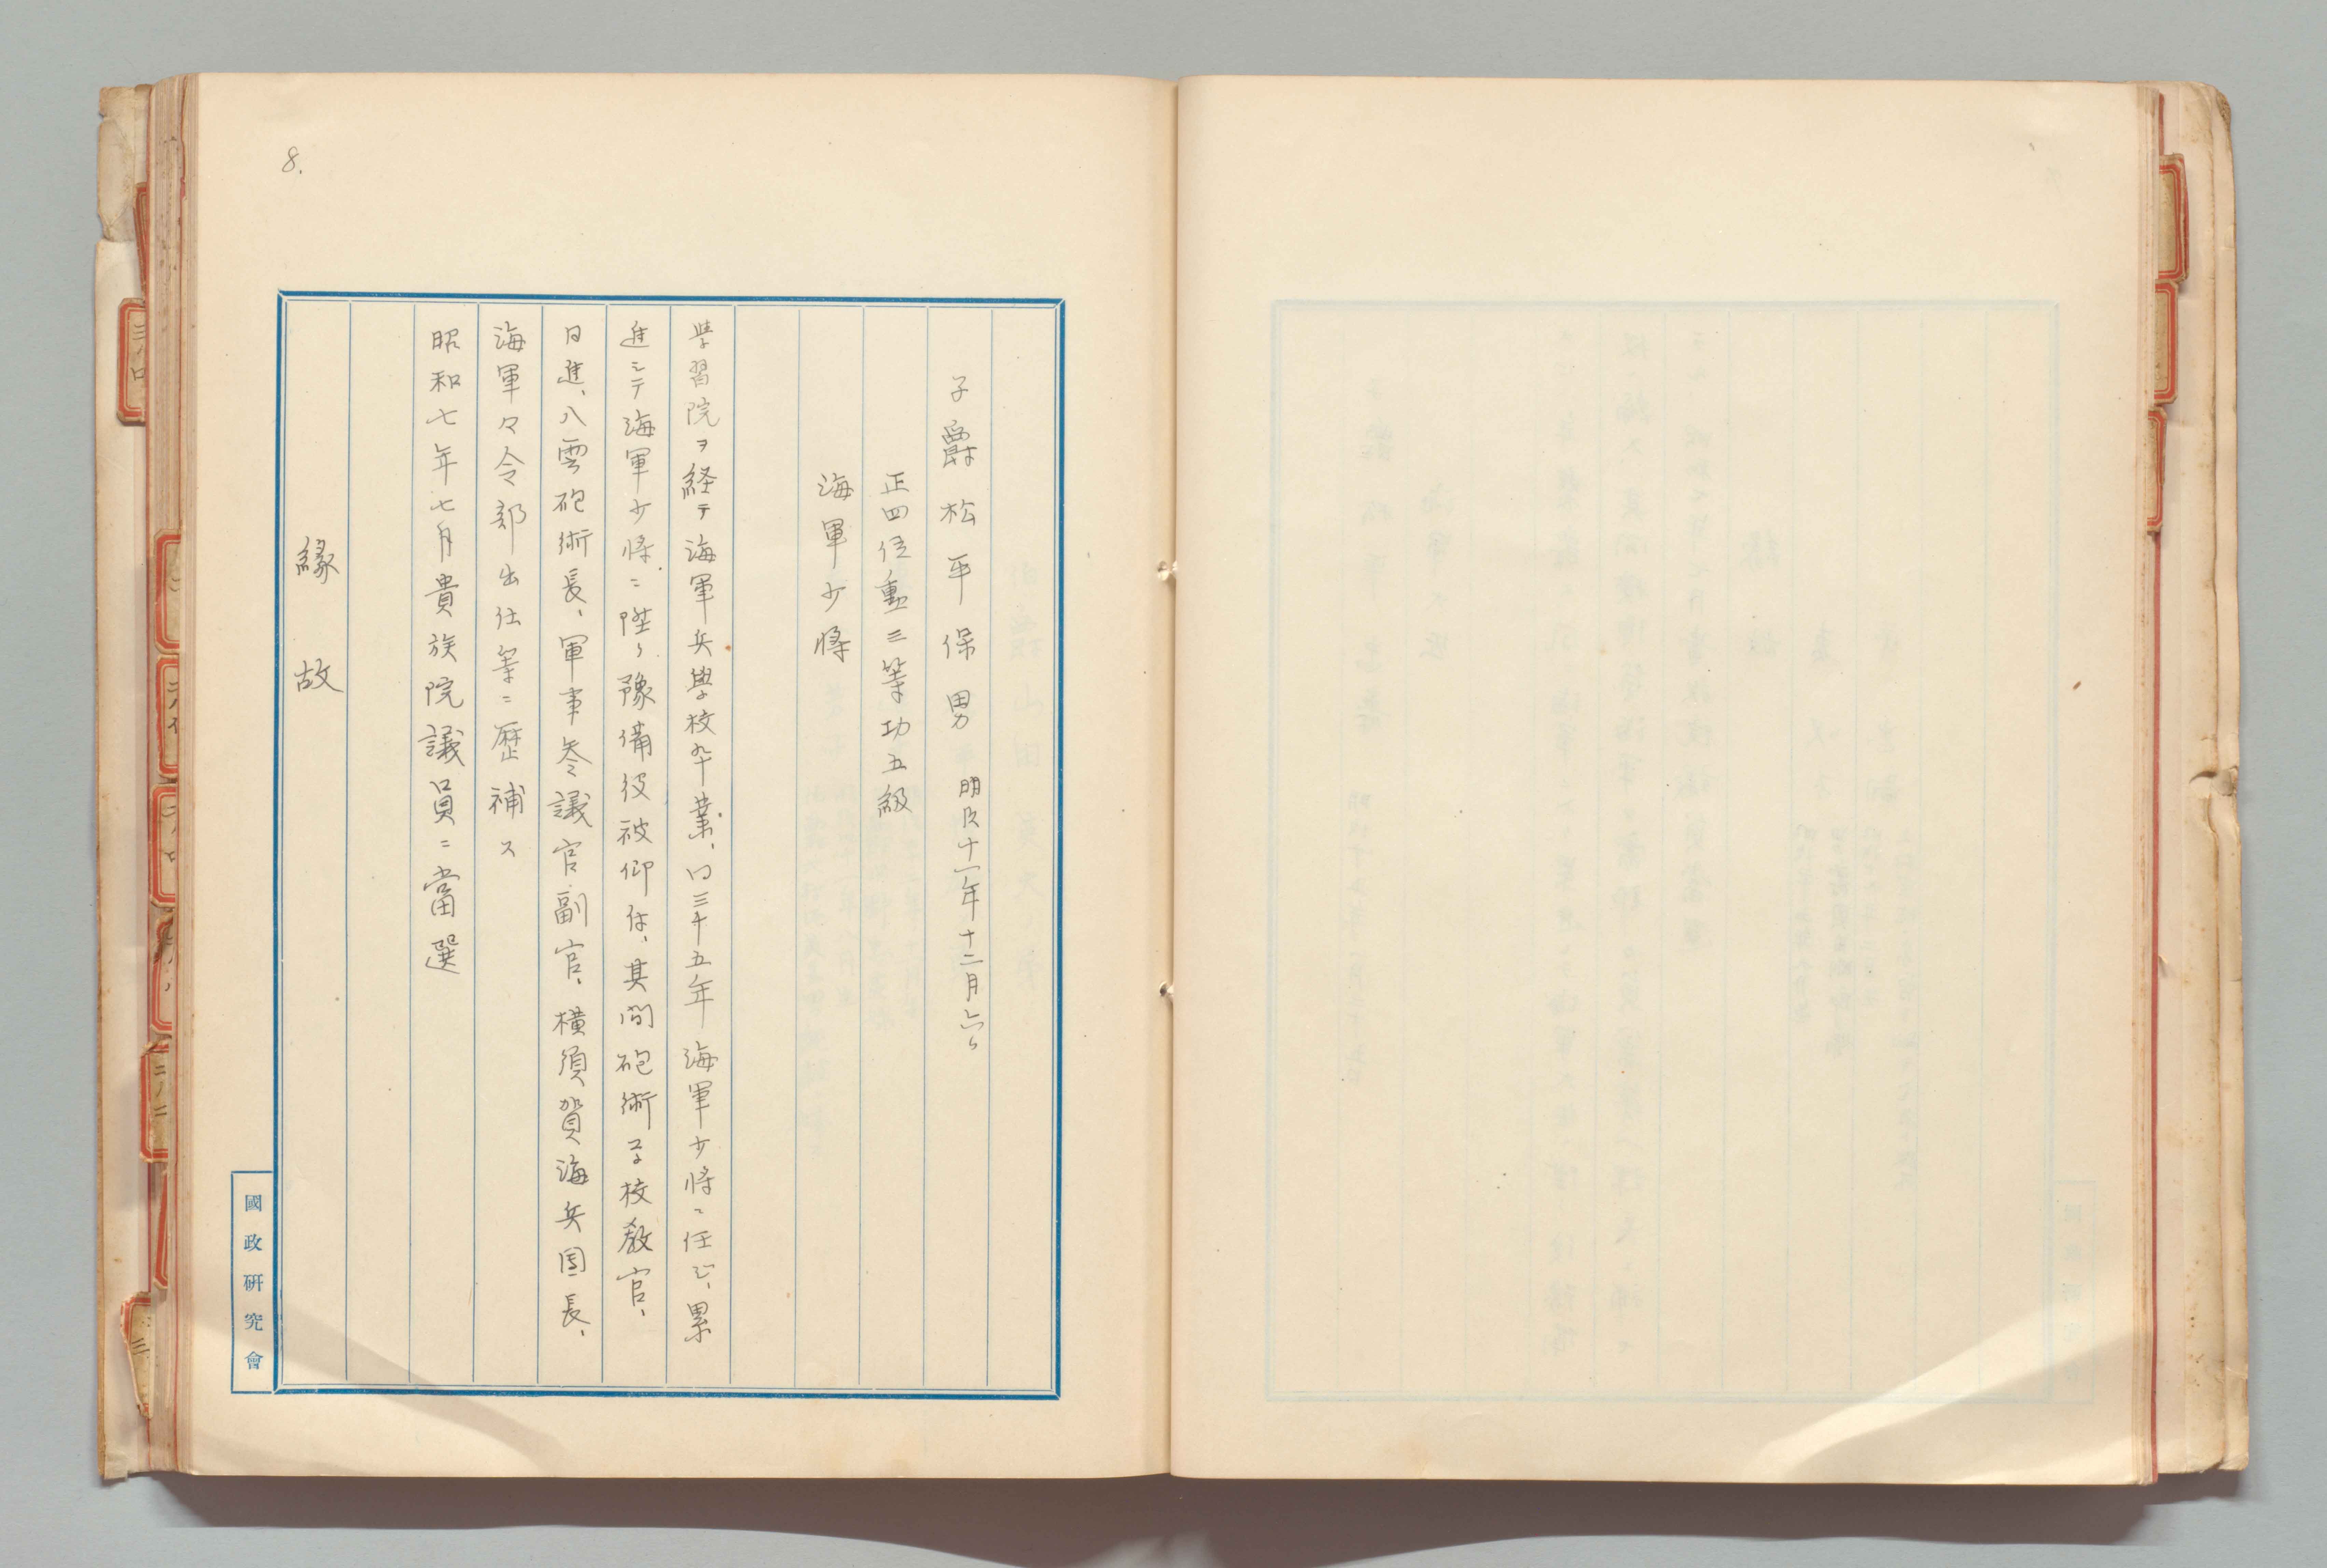 8.
子爵 松平保男 明治十一年十二月六日
正四位勲三等功五級
海軍少将
学習院ヲ経テ海軍兵學校卆業、口三十五年 海軍少将ニ任ジ、累
進シテ海軍少将ニ陞リ予豫備役被仰付、其間砲術学校教官、
日進、八雲砲術長、軍事参議官副官、横須賀海兵団長、
海軍々令部出仕等ニ歴補ス
昭和七年七月貴族院議員ニ當選
縁故
國政研究會